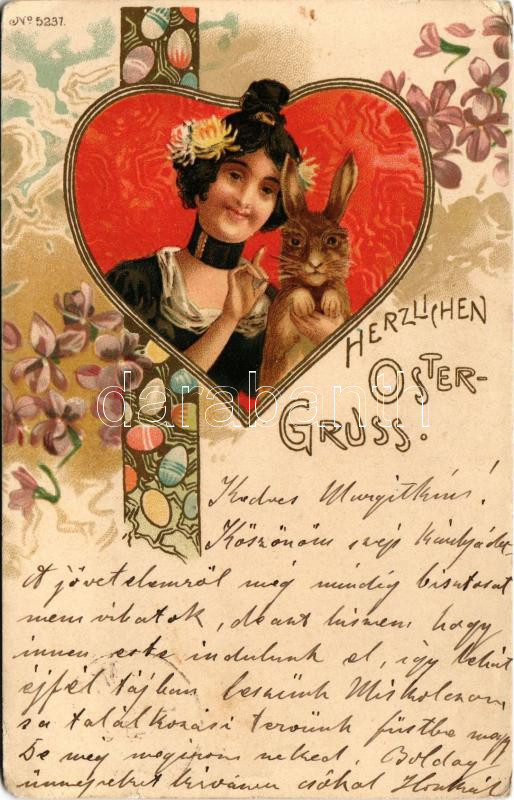 No 5237.
HERZLICHEN
OSTER-
GRUSS.
darabanth
Kedves Margitkám!
Köszönöm szép
A jövetelemről még mindig biztosat
nem irhatok, de azt hiszem hogy
innen este indulunk el, így tehát
éjfél tájban leszünk Miskolczon,
a találkozási tervünk füstbe megy
De még megirom neked. Boldog
ünnepeket kivánva csókol